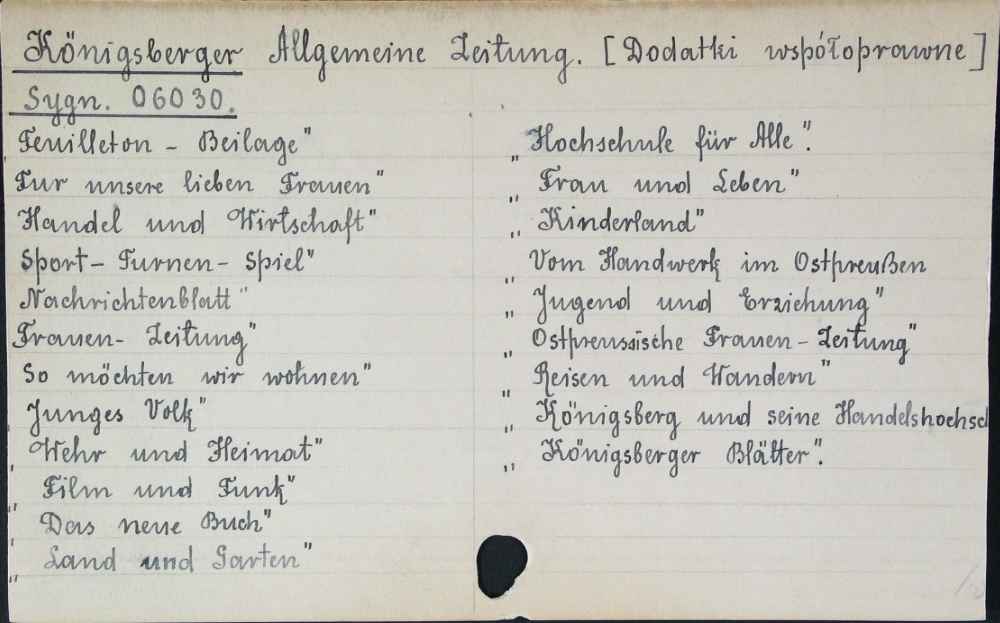 Königsberger Allgemeine Zeitung. [Dodatki współoprawne]
Sygn. 06030.
Feuilleton - Beilage"
Fur unsere lieben Frauen"
Handel und Wirtschaft"
Sport- Turnen- Spiel"
Nachrichtenblatt"
Frauen- Zeitung"
So möchten wir wohnen"
Junges Volk"
" Wehr und Heimat"
" Film und Funk"
" Das neue Buch"
" Land und Garten"
„ Hochschule für Alle".
„ Frau und Leben"
„ Kinderland"
„ Vom Handwerk im Ostpreußen
„ Jugend und Erziehung"
„ Ostpreussische Frauen-Zeitung"
„ Reisen und Wandern"
„ Königsberg und seine Handelshochsc
„ Königsberger Blätter".